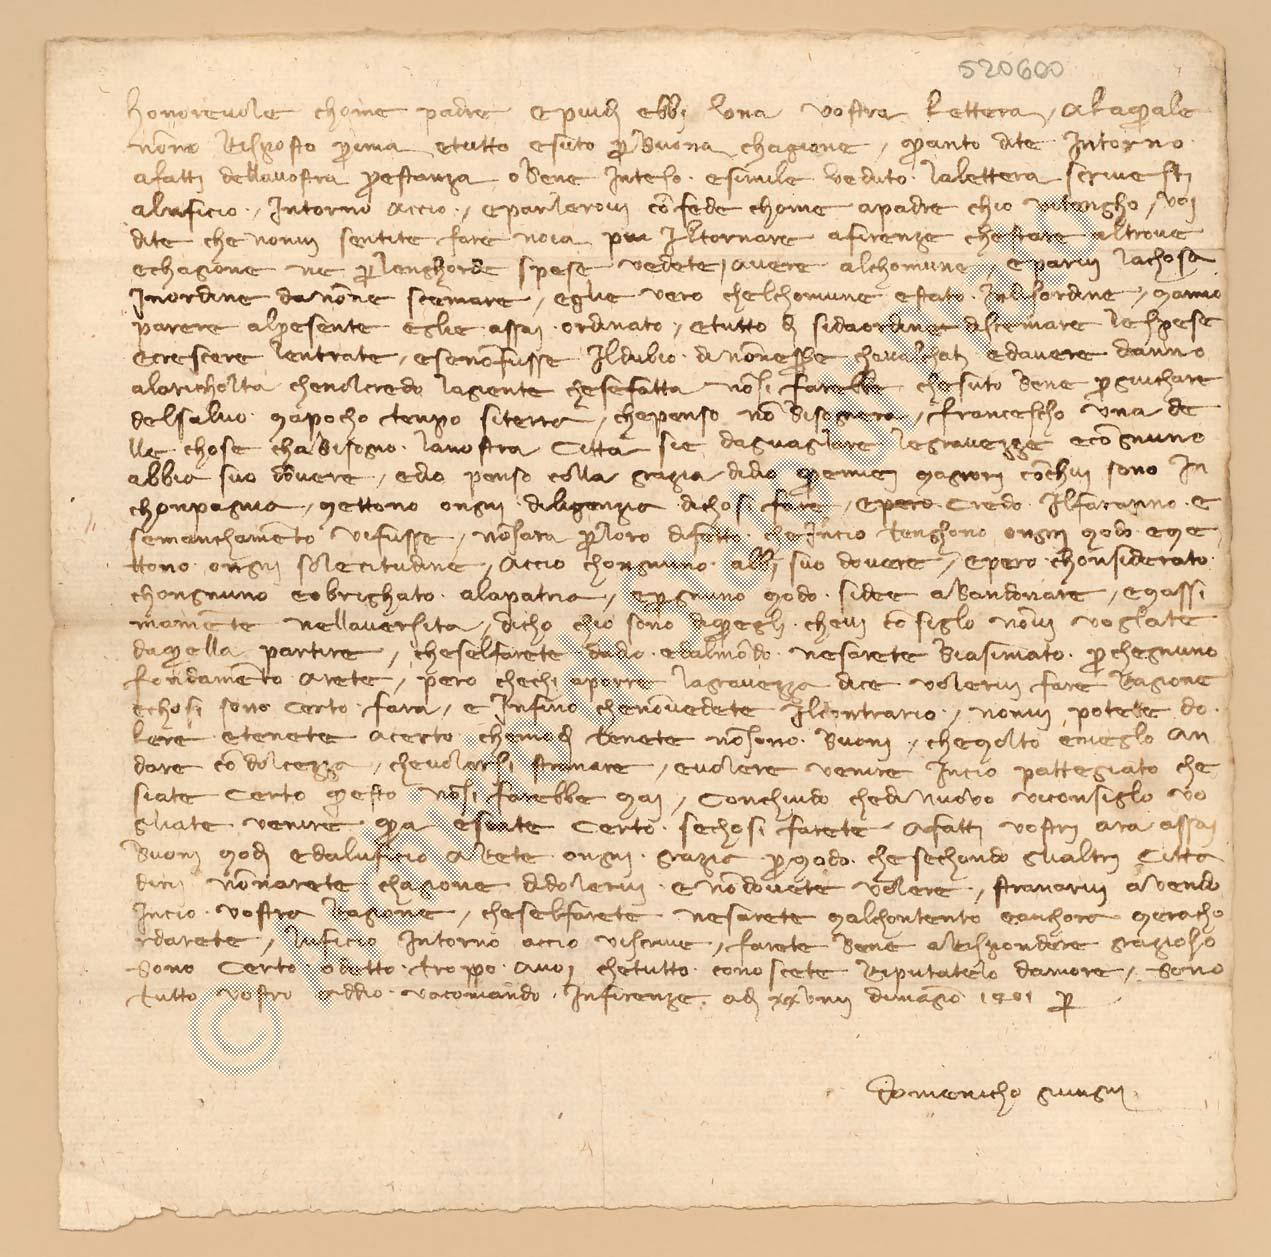 520600
Honorevole chome padre e piu dì ebbi lona vostra lettera, alaquale
none risposto prima etutto esuto per buona chagione, quanto dite intorno
afatti dellavostra prestanza o bene inteso e simile veduto la lettera scrivesti
aluficio, intorno accio, eparlerovi con fede chome apadre chio vitengho, voi
dite che nonvi sentite fare noia piu il tornare afirenze chestare altrove
echagione ne per lenghorde spese vedete avere alchomune, eparvi lachosa
inordine danone scemare, eglie vero chelchomune estato indisordine, mamio
parere alpresente eglie assai ordinato, etutto dì sidaordine discemare lespese
ecrescere lentrate, esenonfusse il dubio di chavalchati edavere danno
alaricholta chenolcredo lagiente chesefatta nonsi farebbe chesuto bene
delsalvo mapocho tenpo siterra, chepenso non bisognera, francescho una de
lle chose cha bisogno lanostra citta sie daguaglare legravezze econgnuno
abbia suo dovere, edio penso colla grazia didio quemiei magiori conchui sono in
chonpagnia, mettono ongni diligenzia dichosi fare, epero credo ilfaranno e
semanchamento vifusse, nonsara per loro difetto che incio tenghono ongni modo eme
ttono ongni solecitudine, accio chongnuno abbi suo dovere, epero chonsiderato
chongnuno eobrighato alapatria, epongnuno modo sidee abandonare, emassi
mamente nellaversita, dicho chio sono diquegli chevi consiglo nonvi voglate
daquella partire, cheselfarete dadio edalmondo nesarete biasimato perchegnuno
fondamento arete, pero chechi aporre lagravezza dice volervi fare ragione
echosi sono certo fara, e infino chenonvedete ilcontrario, nonvi potete do
lere etenete acerto chemodi tenete nonsono buoni, chemolto emeglo an
dare con dolcezza, chevolersi stranare, evolere venire incio pattegiato che
siate certo questo nonsi farebbe mai, Conchiudo chedinuovo viconsiglo vo
gliate venire qua esiate certo sechosi farete afatti vostri ara assai
buoni modi edaluficio arete ongni grazia per modo che sechondo glialtri citta
dini nonnarete chagione didolervi enondovete volere, stranarvi avendo
incio vostra ragione, cheselfarete nesarete malchontento eanchora meracho
rdarete, luficio intorno accio viscrive, farete bene arispondere grazioso
sono certo odetto troppo avoi chetutto conoscete riputatelo damore, sono
tutto vostro iddio vacomandi infirenze adì xxviiii dimagio 1401 per
Domenicho giungni